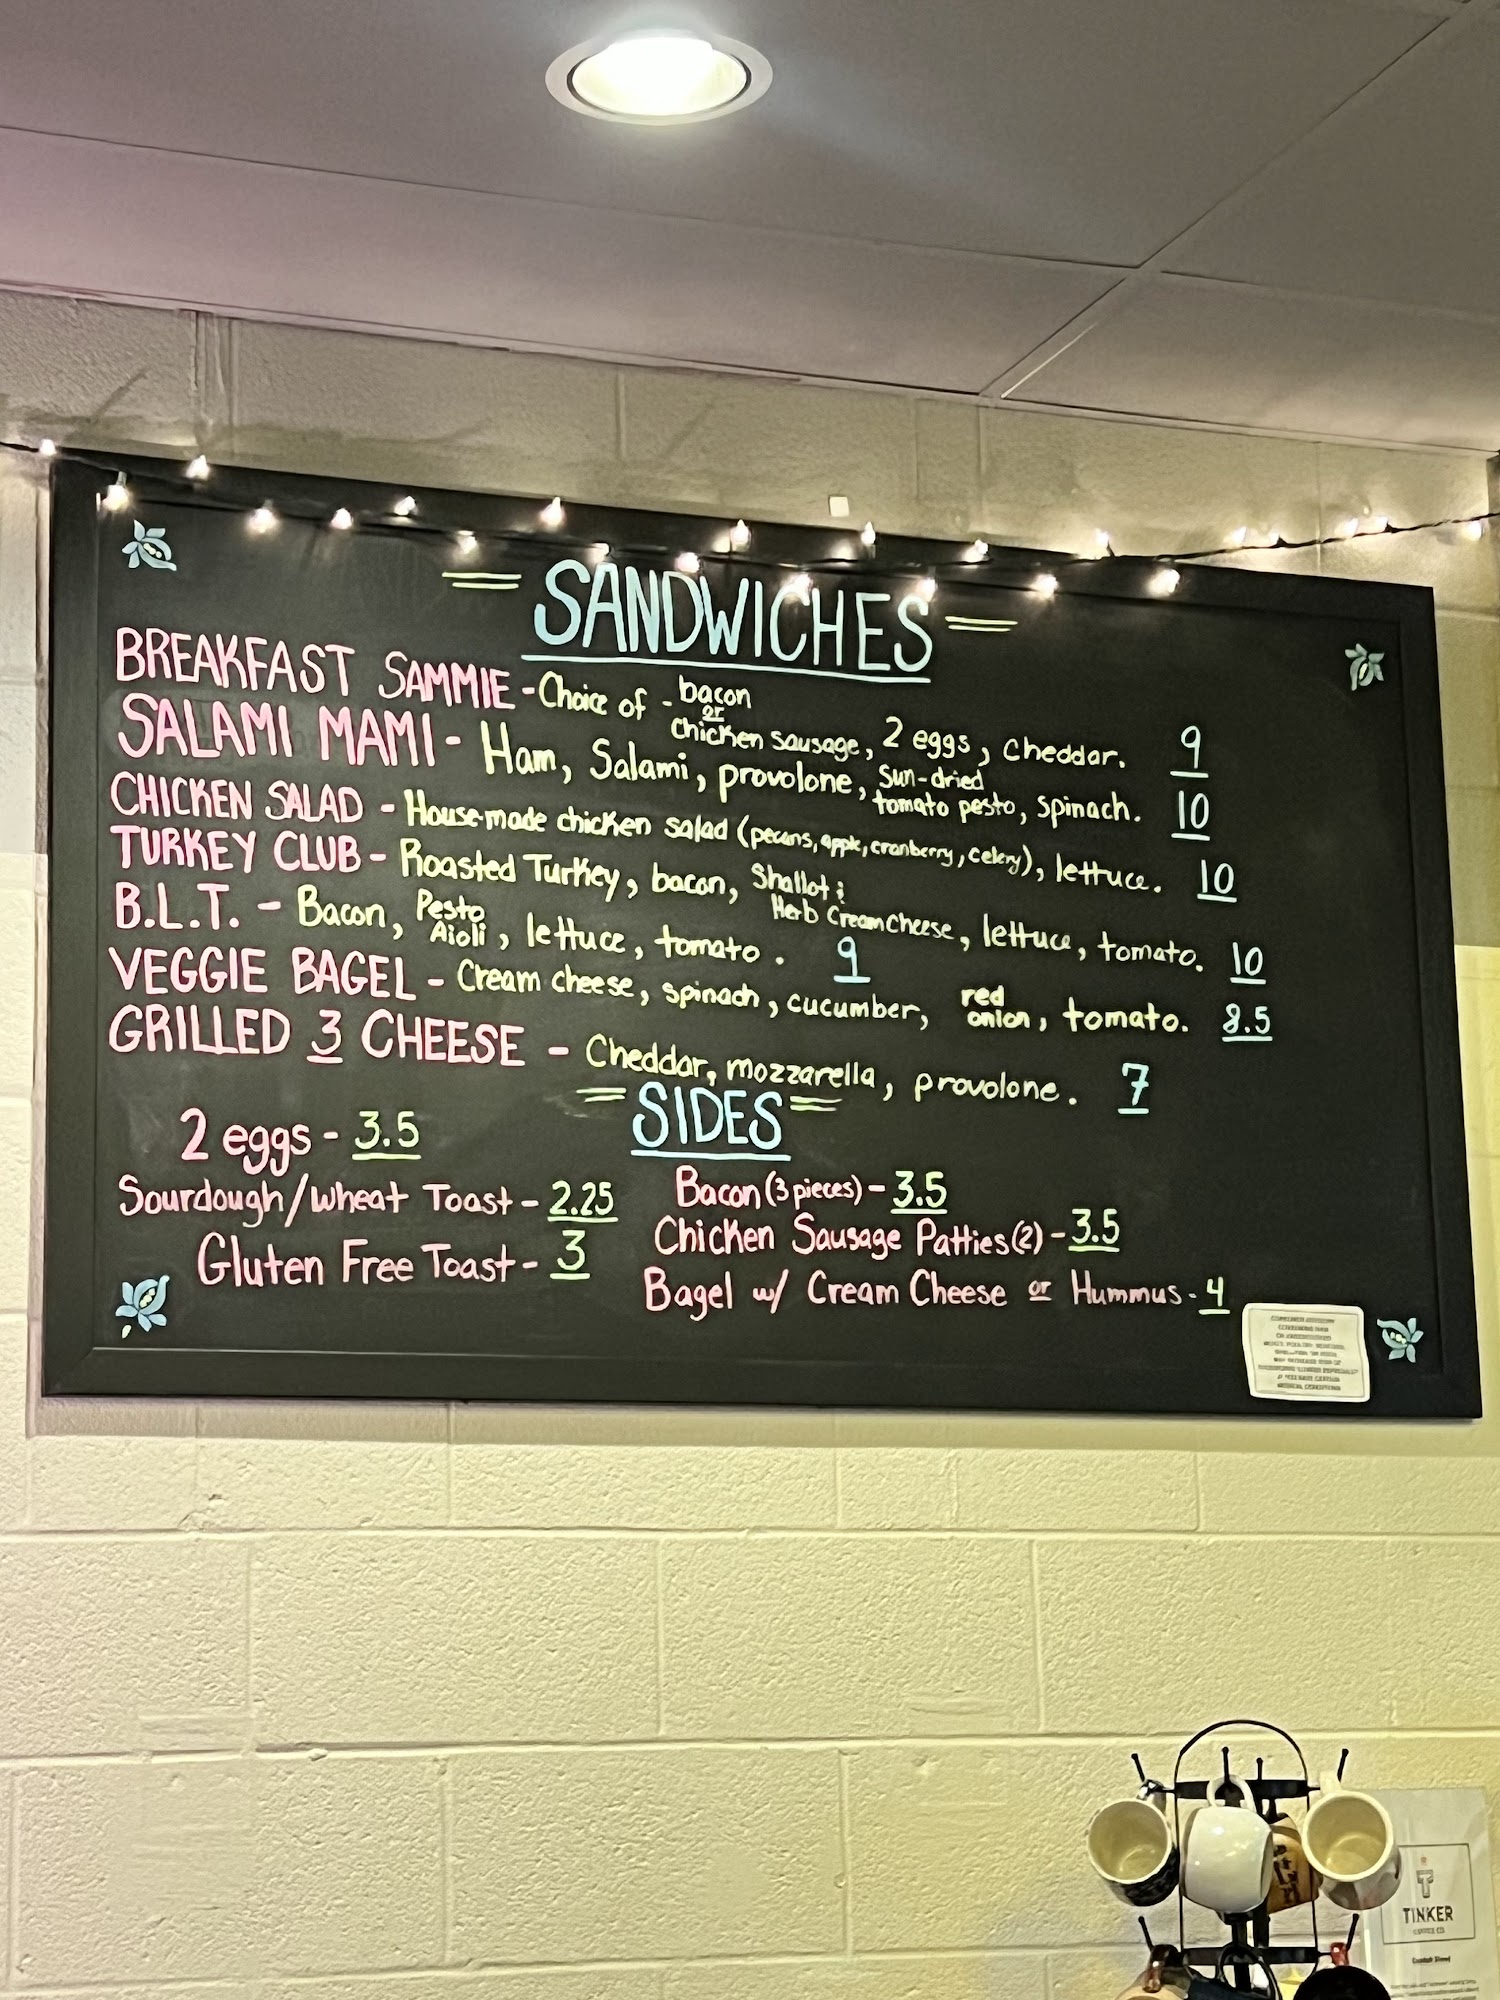 SANDWICHES
BREAKFAST SAMMIE - Choice of - bacon or chicken sausage, 2 eggs, cheddar. 9
SALAMI MAMI - Ham, Salami, provolone, sun-dried tomato pesto, spinach. 10
CHICKEN SALAD - House-made chicken salad (pecans, apple, cranberry, celery), lettuce. 10
TURKEY CLUB - Roasted Turkey, bacon, Shallot & Herb Cream Cheese, lettuce, tomato. 10
B.L.T. - Bacon, Pesto Aioli, lettuce, tomato. 9
VEGGIE BAGEL - Cream cheese, spinach, cucumber, red onion, tomato. 8.5
GRILLED 3 CHEESE - Cheddar, mozzarella, provolone. 7
SIDES
2 eggs - 3.5
Sourdough/Wheat Toast - 2.25
Gluten Free Toast - 3
Bacon (3 pieces) - 3.5
Chicken Sausage Patties (2) - 3.5
Bagel w/ Cream Cheese or Hummus - 4
TINKER
COFFEE CO.